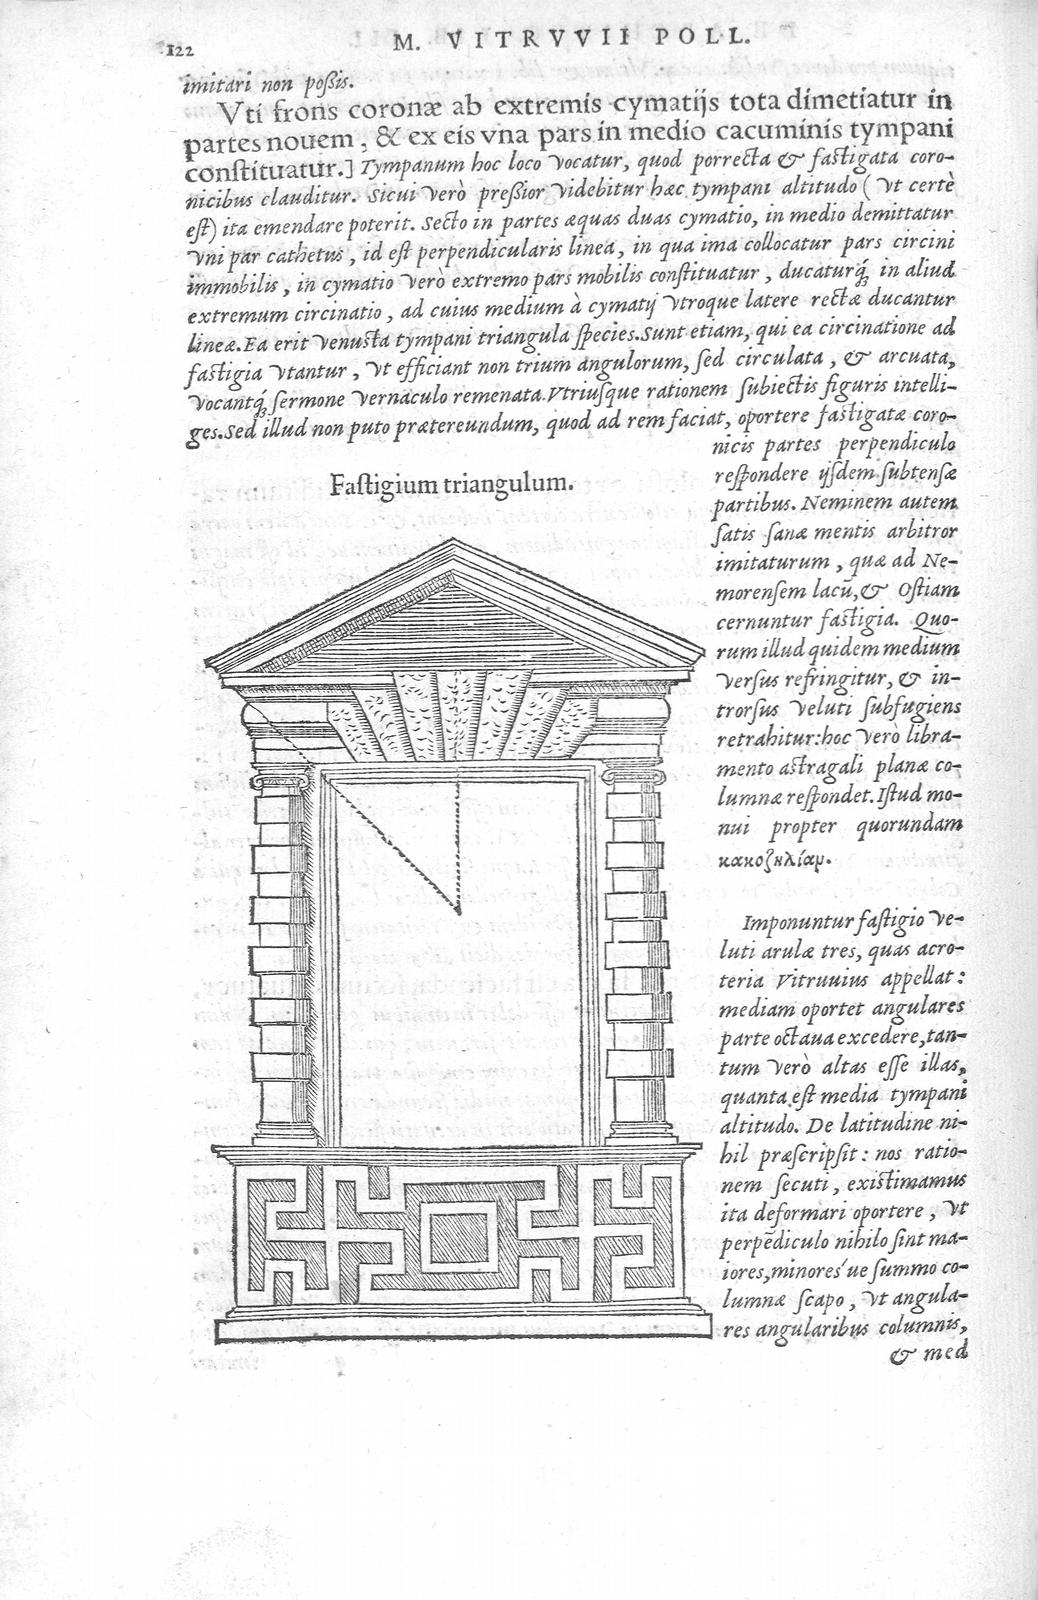 122
M. VITRVVII POLL.
imitari non poßis.
Vti frons coronæ ab extremis cymatijs tota dimetiatur in
partes nouem, & ex eis vna pars in medio cacuminis tympani
constituatur.] Tympanum hoc loco vocatur, quod porrecta & fastigata coro-
nicibus clauditur. Sicui verò preßior videbitur hæc tympani altitudo ( vt certè
est) ita emendare poterit. Secto in partes æquas duas cymatio, in medio demittatur
vni par cathetus, id est perpendicularis linea, in qua ima collocatur pars circini
immobilis, in cymatio verò extremo pars mobilis constituatur, ducaturq́; in aliud
extremum circinatio, ad cuius medium à cymatij vtroque latere rectæ ducantur
lineæ. Ea erit venusta tympani triangula species. Sunt etiam, qui ea circinatione ad
fastigia vtantur, vt efficiant non trium angulorum, sed circulata, & arcuata,
vocantq́; sermone vernaculo remenata. Vtriusque rationem subiectis figuris intelli-
ges. Sed illud non puto prætereundum, quod ad rem faciat, oportere fastigatæ coro-
nicis partes perpendiculo
respondere ijsdem subtensæ
partibus. Neminem autem
satis sanæ mentis arbitror
imitaturum, quæ ad Ne-
morensem lacū, & Ostiam
cernuntur fastigia. Quo-
rum illud quidem medium
versus refringitur, & in-
trorsus veluti subfugiens
retrahitur: hoc vero libra-
mento astragali planæ co-
lumnæ respondet. Istud mo-
nui propter quorundam
κακοζηλίαμ.
Fastigium triangulum.
Imponuntur fastigio ve-
luti arulæ tres, quas acro-
teria Vitruuius appellat:
mediam oportet angulares
parte octaua excedere, tan-
tum verò altas esse illas,
quanta est media tympani
altitudo. De latitudine ni-
hil præscripsit: nos ratio-
nem secuti, existimamus
ita deformari oportere, vt
perpēdiculo nihilo sint ma-
iores, minores'ue summo co-
lumnæ scapo, vt angula-
res angularibus columnis,
& med